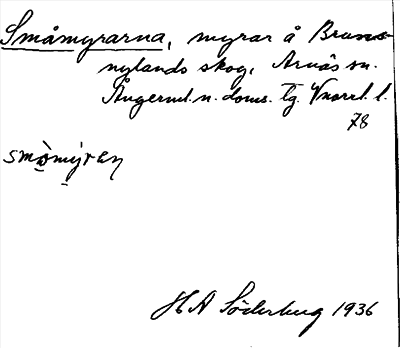 Småmyrarna, myrar å Bruns-
nylands skog, Arnäs sn.
Ångerml. n. doms. Tg. Vnorrl. l.
78
småmýren
H A Söderberg 1936